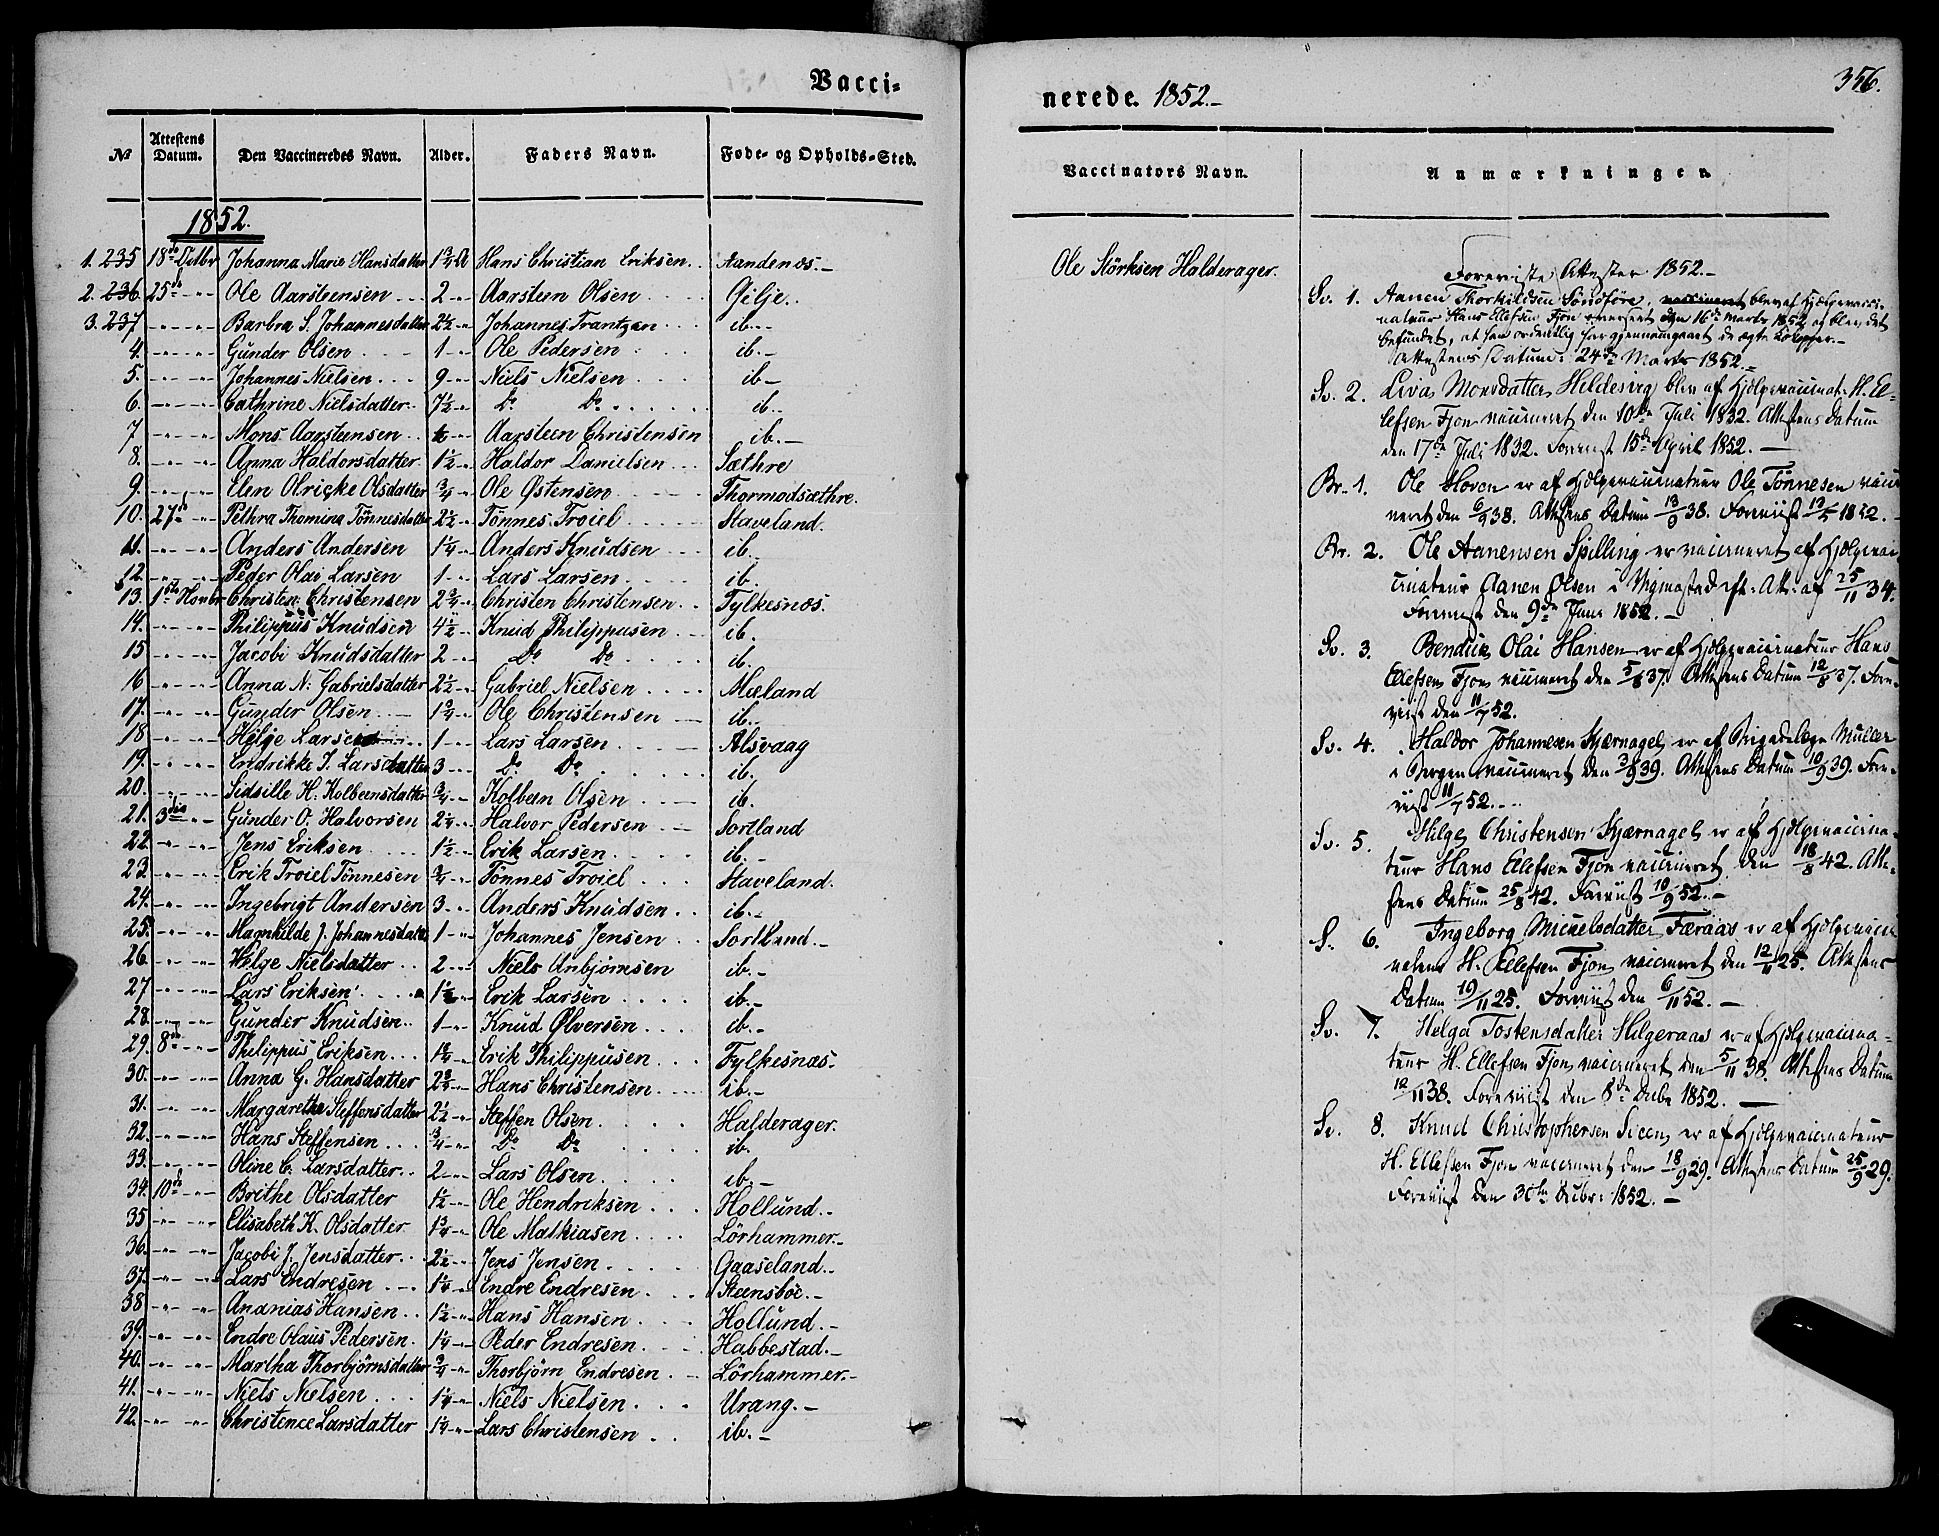 Vacci-
№ Attestens Datum. Den Vaccineredes Navn. Alder. Faders Navn. Føde- og Opholds-Sted.
1852.
1. 235 18de Octbr Johanna Marie Hansdatter 1¾ A Hans Christian Eriksen Aandenæs.
2. 236 25de " Ole Aarsteensen 2 " Aarsteen Olsen Gilje.
3. 237 " " Barbra S. Johannesdatter 2½ " Johannes Frantzen ib.
4. " " Gunder Olsen 1 " Ole Pedersen ib.
5. " " Johannes Nielsen 9 " Niels Nielsen ib
6. " " Cathrine Nielsdatter 7½ " Do Do ib.
7 " " Mons Aarsteensen " Aarsteen Christensen ib.
8. " " Anna Haldorsdatter 1½ " Haldor Danielsen Sæthre
9. " " Elen Olricke Olsdatter ¾ " Ole Østensen Thormodsæthre.
10. 27de " Pethra Thomina Tönnesdatter 2½ " Tönnes Troiel Staveland.
11. " " Anders Andersen 1¼ " Anders Knudsen ib.
12. " " Peder Olai Larsen 1 " Lars Larsen ib.
13. 1ste Novbr Christen Christensen 2¾ " Christen Christensen Fylkesnæs.
14. " " Philippus Knudsen 4½ " Knud Philippusen ib.
15 " " Jacobi Knudsdatter 2 " Do Do ib.
16 " " Anna N. Gabrielsdatter 2½ " Gabriel Nielsen Mæland
17. " " Gunder Olsen 1¾ " Ole Christensen ib.
18 " " Helje Larsen 1 " Lars Larsen Alsvaag
19. " " Endrikke J. Larsdatter 3 " Do Do ib.
20. " " Sidsille H. Kolbeensdatter ¾ " Kolbein Olsen ib.
21. 3die " Gunder O. Halvorsen 2¼ " Halvor Pedersen Sortland
22. " " Jens Eriksen 1½ " Erik Larsen ib.
23 " " Erik Troiel Tönnesen ¾ " Tönnes Troiel Staveland.
24. " " Ingebrigt Andersen 3 " Anders Knudsen ib.
25. " " Magnhilde J. Johannesdatter 1 " Johannes Jensen Sortland.
26. " " Helge Nielsdatter 2 " Niels Anbjørnsen ib.
27 " " Lars Eriksen 1½ " Erik Larsen ib.
28. " " Gunder Knudsen 1 " Knud Ølversen ib.
29. 8de " Philippus Eriksen 1¾ " Erik Philippusen Fylkesnæs.
30. " " Anna G. Hansdatter 2¾ " Hans Christensen ib.
31. " " Margaretha Steffensdatter 2½ " Steffen Olsen Halderager.
32. " " Hans Steffensen ¾ " Do Do ib.
33. " " Oline C. Larsdatter 2 " Lars Olsen ib.
34. 10de " Brithe Olsdatter 1½ " Ole Hendriksen Hollund.
35 " " Elisabeth K. Olsdatter 1¾ " Ole Mathiasen Lörhammer.
36. " " Jacobi J. Jensdatter 2½ " Jens Jensen Gaaseland.
37. " " Lars Endresen 1¼ " Endre Endresen Steensböe.
38 " " Ananias Hansen 1½ " Hans Hansen Hollund.
39. " " Endre Olaus Pedersen 1¼ " Peder Endresen Habbestad.
40. " " Martha Thorbjørnsdatter ¾ " Thorbjørn Endresen Lörhammer.
41. " " Niels Nielsen 1¼ " Niels Nielsen Urang.
42. " " Christence Larsdatter 1¼ " Lars Christensen ib.
nerede. 1852.
356.
Vaccinators Navn. Anmærkninger.
Ole Störksen Halderager.
Foreviste Attester 1852.
Sv. 1. Aanen Thorkildsen Söndföre, vaccineret blev af Hjælpevacci-
nateur Hans Ellefsen Fjon den 16de Marts 1852 og blev det
befundet, at han ordentlig har gjennemgaaet de ægte Kokopper.
Attestens Datum: 24de Marts 1852.
Sv. 2. Liva Monsdatter Hildesvig blev af Hjælpevaccinat. H. El-
lefsen Fjon vaccineret den 10de Juli 1832. Attestens Datum
den 17de Juli 1832. Forevist 15de April 1852.
Br. 1. Ole Hoven er af Hjælpevaccinateur Ole Tönnesen vacci
neret den 6/9 38. Attestens Datum 13/9 38. Foreviist 1852.
Br. 2. Ole Aanensen Spilling er vaccineret af Hjælpevac
cinateur Aanen Olsen i Vigmostad Att. af 25/11 34.
Forevist den 9de Juni 1852.
Sv. 3. Bendick Olai Hansen er af Hjælpevaccinateur Hans
Ellefsen Fjon vaccineret den 5/8 37. Attestens Datum 12/8 37. Fore-
viist den 11/7 52.
Sv. 4. Haldor Johannesen Kjærnagel er af Brigadelæge Müller
i Bergen vaccineret den 3/9 39. Attestens Datum 10/9 39. Fore-
viist 11/7 52.
Sv. 5. Helge Christensen Kjærnagel er af Hjælpevaccina-
teur Hans Ellefsen Fjon vaccineret den 18/8 42. Atte-
stens Datum 25/8 42. Foreviist 10/9 52.
S. 6. Ingeborg Mickelsdatter Færaas er af Hjælpevacci
nateur H. Ellefsen Fjon vaccineret den 12/11 25. Attestens
Datum 19/11 25. Foreviist den 6/11 52.
Sv. 7. Helga Tostensdatter Helgeraas er af Hjælpevaccina-
teur H. Ellefsen Fjon vaccineret den 5/11 38. Attestens Datum
12/11 38. Foreviist den 8de Decbr 1852.
Sv. 8. Knud Christophersen er af Hjælpevaccinateur
H. Ellefsen Fjon vaccineret den 18/9 29. Attestens Datum 25/9 29.
Foreviist den 30te Decbr: 1852.